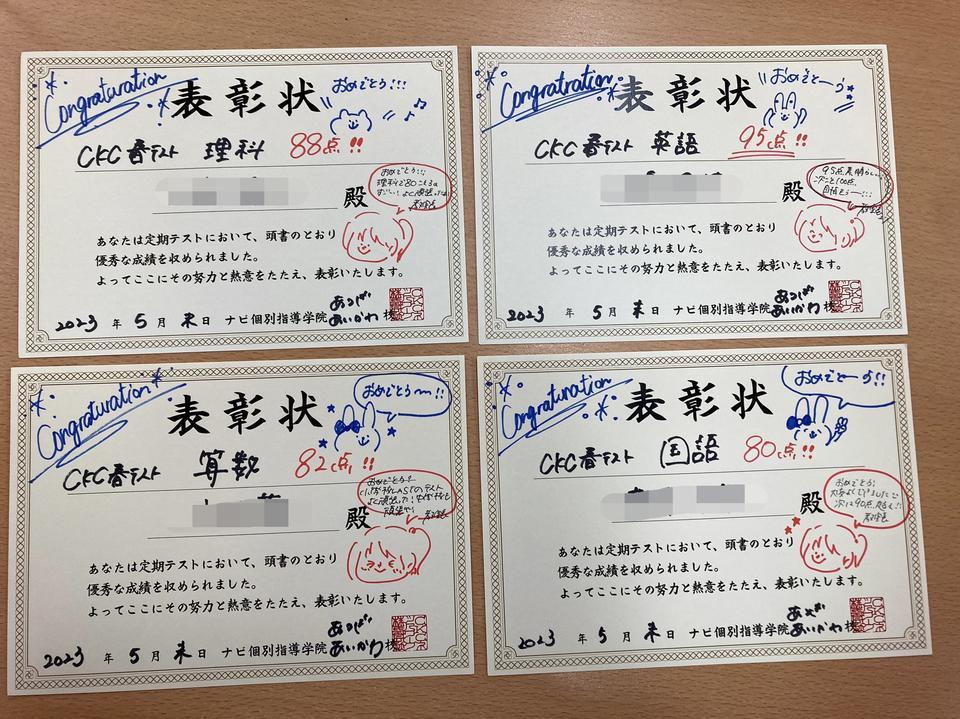 Congraturation
表彰状
おめでとう!!!
CKC春テスト 理科 88点!!
殿
おめでとう!!
あなたは定期テストにおいて、頭書のとおり
優秀な成績を収められました。
よってここにその努力と熱意をたたえ、表彰いたします。
2023年5月末日 ナビ個別指導学院
あいかわ校
Congratration
表彰状
おめでとー!
CKC春テスト 英語 95点!!
殿
95点素晴らしい
次こそ100点
目指そうー!!!
あなたは定期テストにおいて、頭書のとおり
優秀な成績を収められました。
よってここにその努力と熱意をたたえ、表彰いたします。
2023年5月末日 ナビ個別指導学院
あいかわ校
Congraturation
表彰状
おめでとう〜!!
CKC春テスト 算数 82点!!
殿
おめでとう!!
あなたは定期テストにおいて、頭書のとおり
優秀な成績を収められました。
よってここにその努力と熱意をたたえ、表彰いたします。
2023年5月末日 ナビ個別指導学院
あいかわ校
Congraturation
表彰状
おめでとーう!!
CKC春テスト 国語 80点!!
殿
おめでとう!
あなたは定期テストにおいて、頭書のとおり
優秀な成績を収められました。
よってここにその努力と熱意をたたえ、表彰いたします。
2023年5月末日 ナビ個別指導学院
あいかわ校